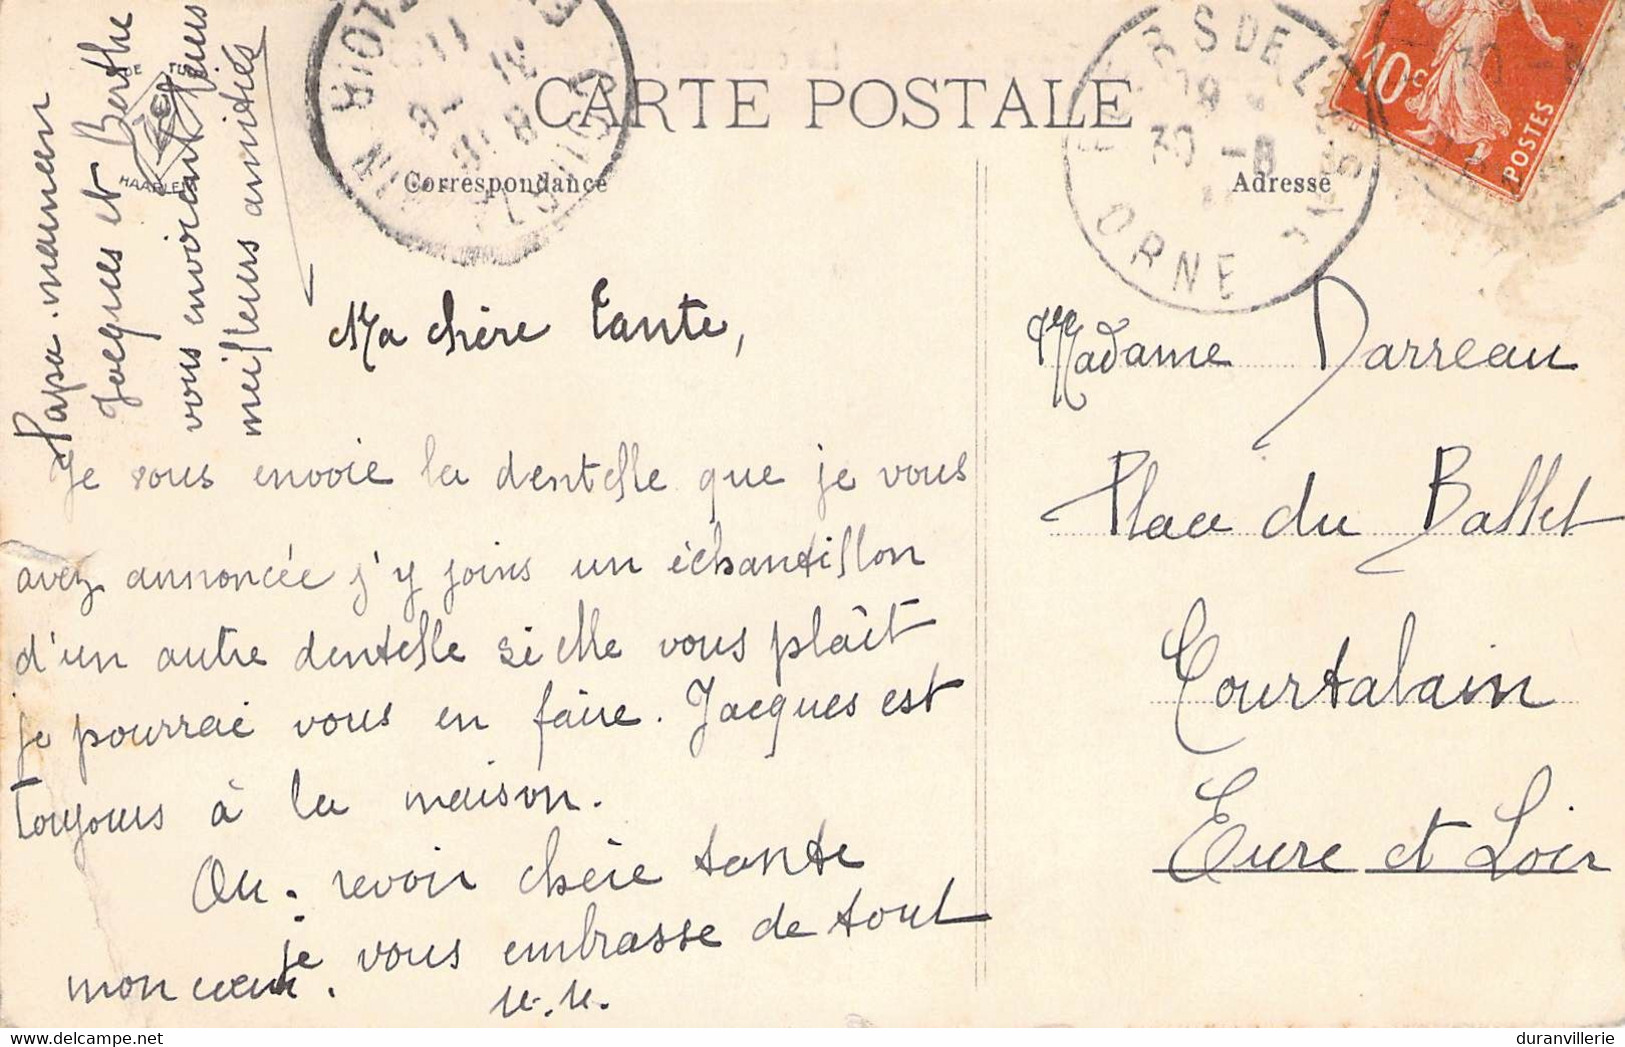 CARTE POSTALE
Correspondance
Adresse
10c
POSTES
ORNE
HAARLEM
Papa maman
Jacques et Berthe
vous envoient leurs
meilleurs amitiés
Ma chère tante,
Je vous envoie la dentelle que je vous
avez annoncée j'y joins un échantillon
d'un autre dentelle si elle vous plaît
je pourrai vous en faire. Jacques est
toujours à la maison.
Au. revoir chère tante
je vous embrasse de tout
mon cœur.
Madame Darreau
Place du Ballet
Courtalain
Eure et Loir
duranvillerie